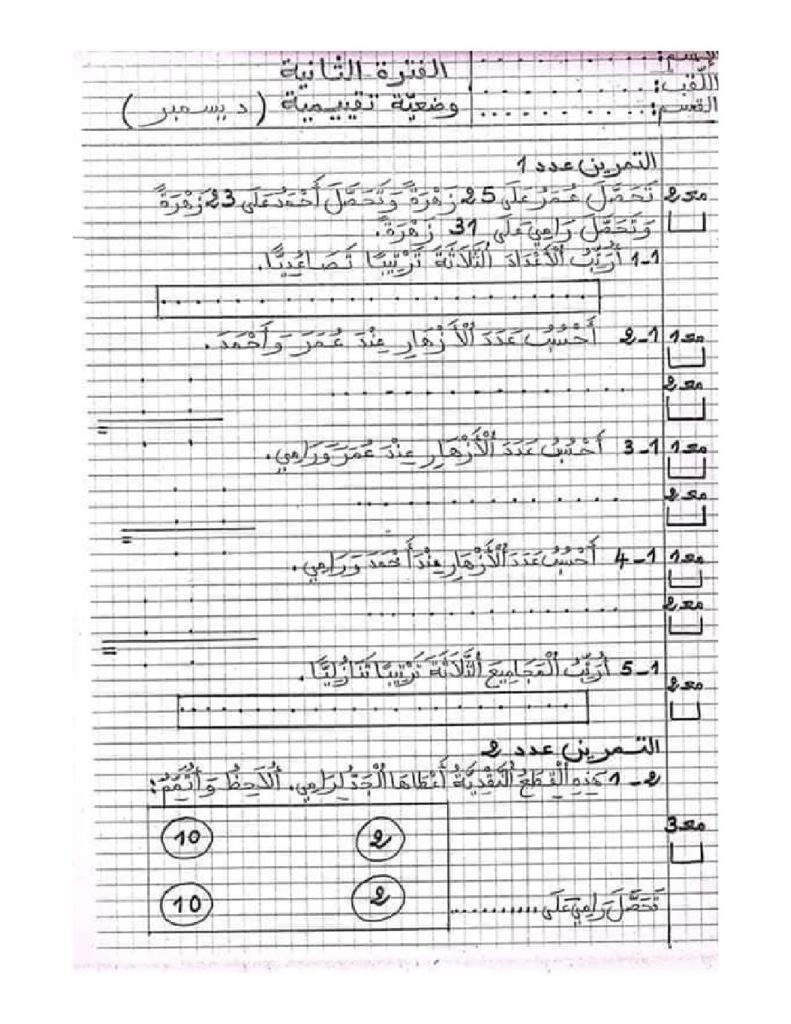 الإسم: . . . . . . . .
اللّقب: . . . . . . . .
القسم: . . . . . . . .
الفترة الثانية
وضعيّة تقييمية (ديسمبر)
التمرين عدد 1
مع2 تَحَصَّلَ عُمَرُ عَلَى 25 زَهْرَةً وَتَحَصَّلَ أَحْمَدُ عَلَى 23 زَهْرَةً
وَتَحَصَّلَ رَامِي عَلَى 31 زَهْرَةً.
1-1 أُرَتِّبُ الْأَعْدَادَ الثَّلَاثَةَ تَرْتِيبًا تَصَاعُدِيًّا.
. . . . . . . . . . . . . . . . . . . .
مع1 1-2 أَحْسُبُ عَدَدَ الْأَزْهَارِ عِنْدَ عُمَرَ وَأَحْمَدَ.
مع2 . . . . . . . . . . . . . . .
=
مع1 1-3 أَحْسُبُ عَدَدَ الْأَزْهَارِ عِنْدَ عُمَرَ وَرَامِي.
مع2 . . . . . . . . . . . . . . .
=
مع1 1-4 أَحْسُبُ عَدَدَ الْأَزْهَارِ عِنْدَ أَحْمَدَ وَرَامِي.
مع2 . . . . . . . . . . . . . . .
=
1-5 أُرَتِّبُ الْمَجَامِيعَ الثَّلَاثَةَ تَرْتِيبًا تَنَازُلِيًّا.
مع2 . . . . . . . . . . . . . . . . . . . .
التمرين عدد 2
2-1 هَذِهِ الْقِطَعُ النَّقْدِيَّةُ أَعْطَاهَا الْجَدُّ لِرَامِي. أُلَاحِظُ وَأُتَمِّمُ:
مع3
2 10
2 10
تَحَصَّلَ رَامِي عَلَى ...........